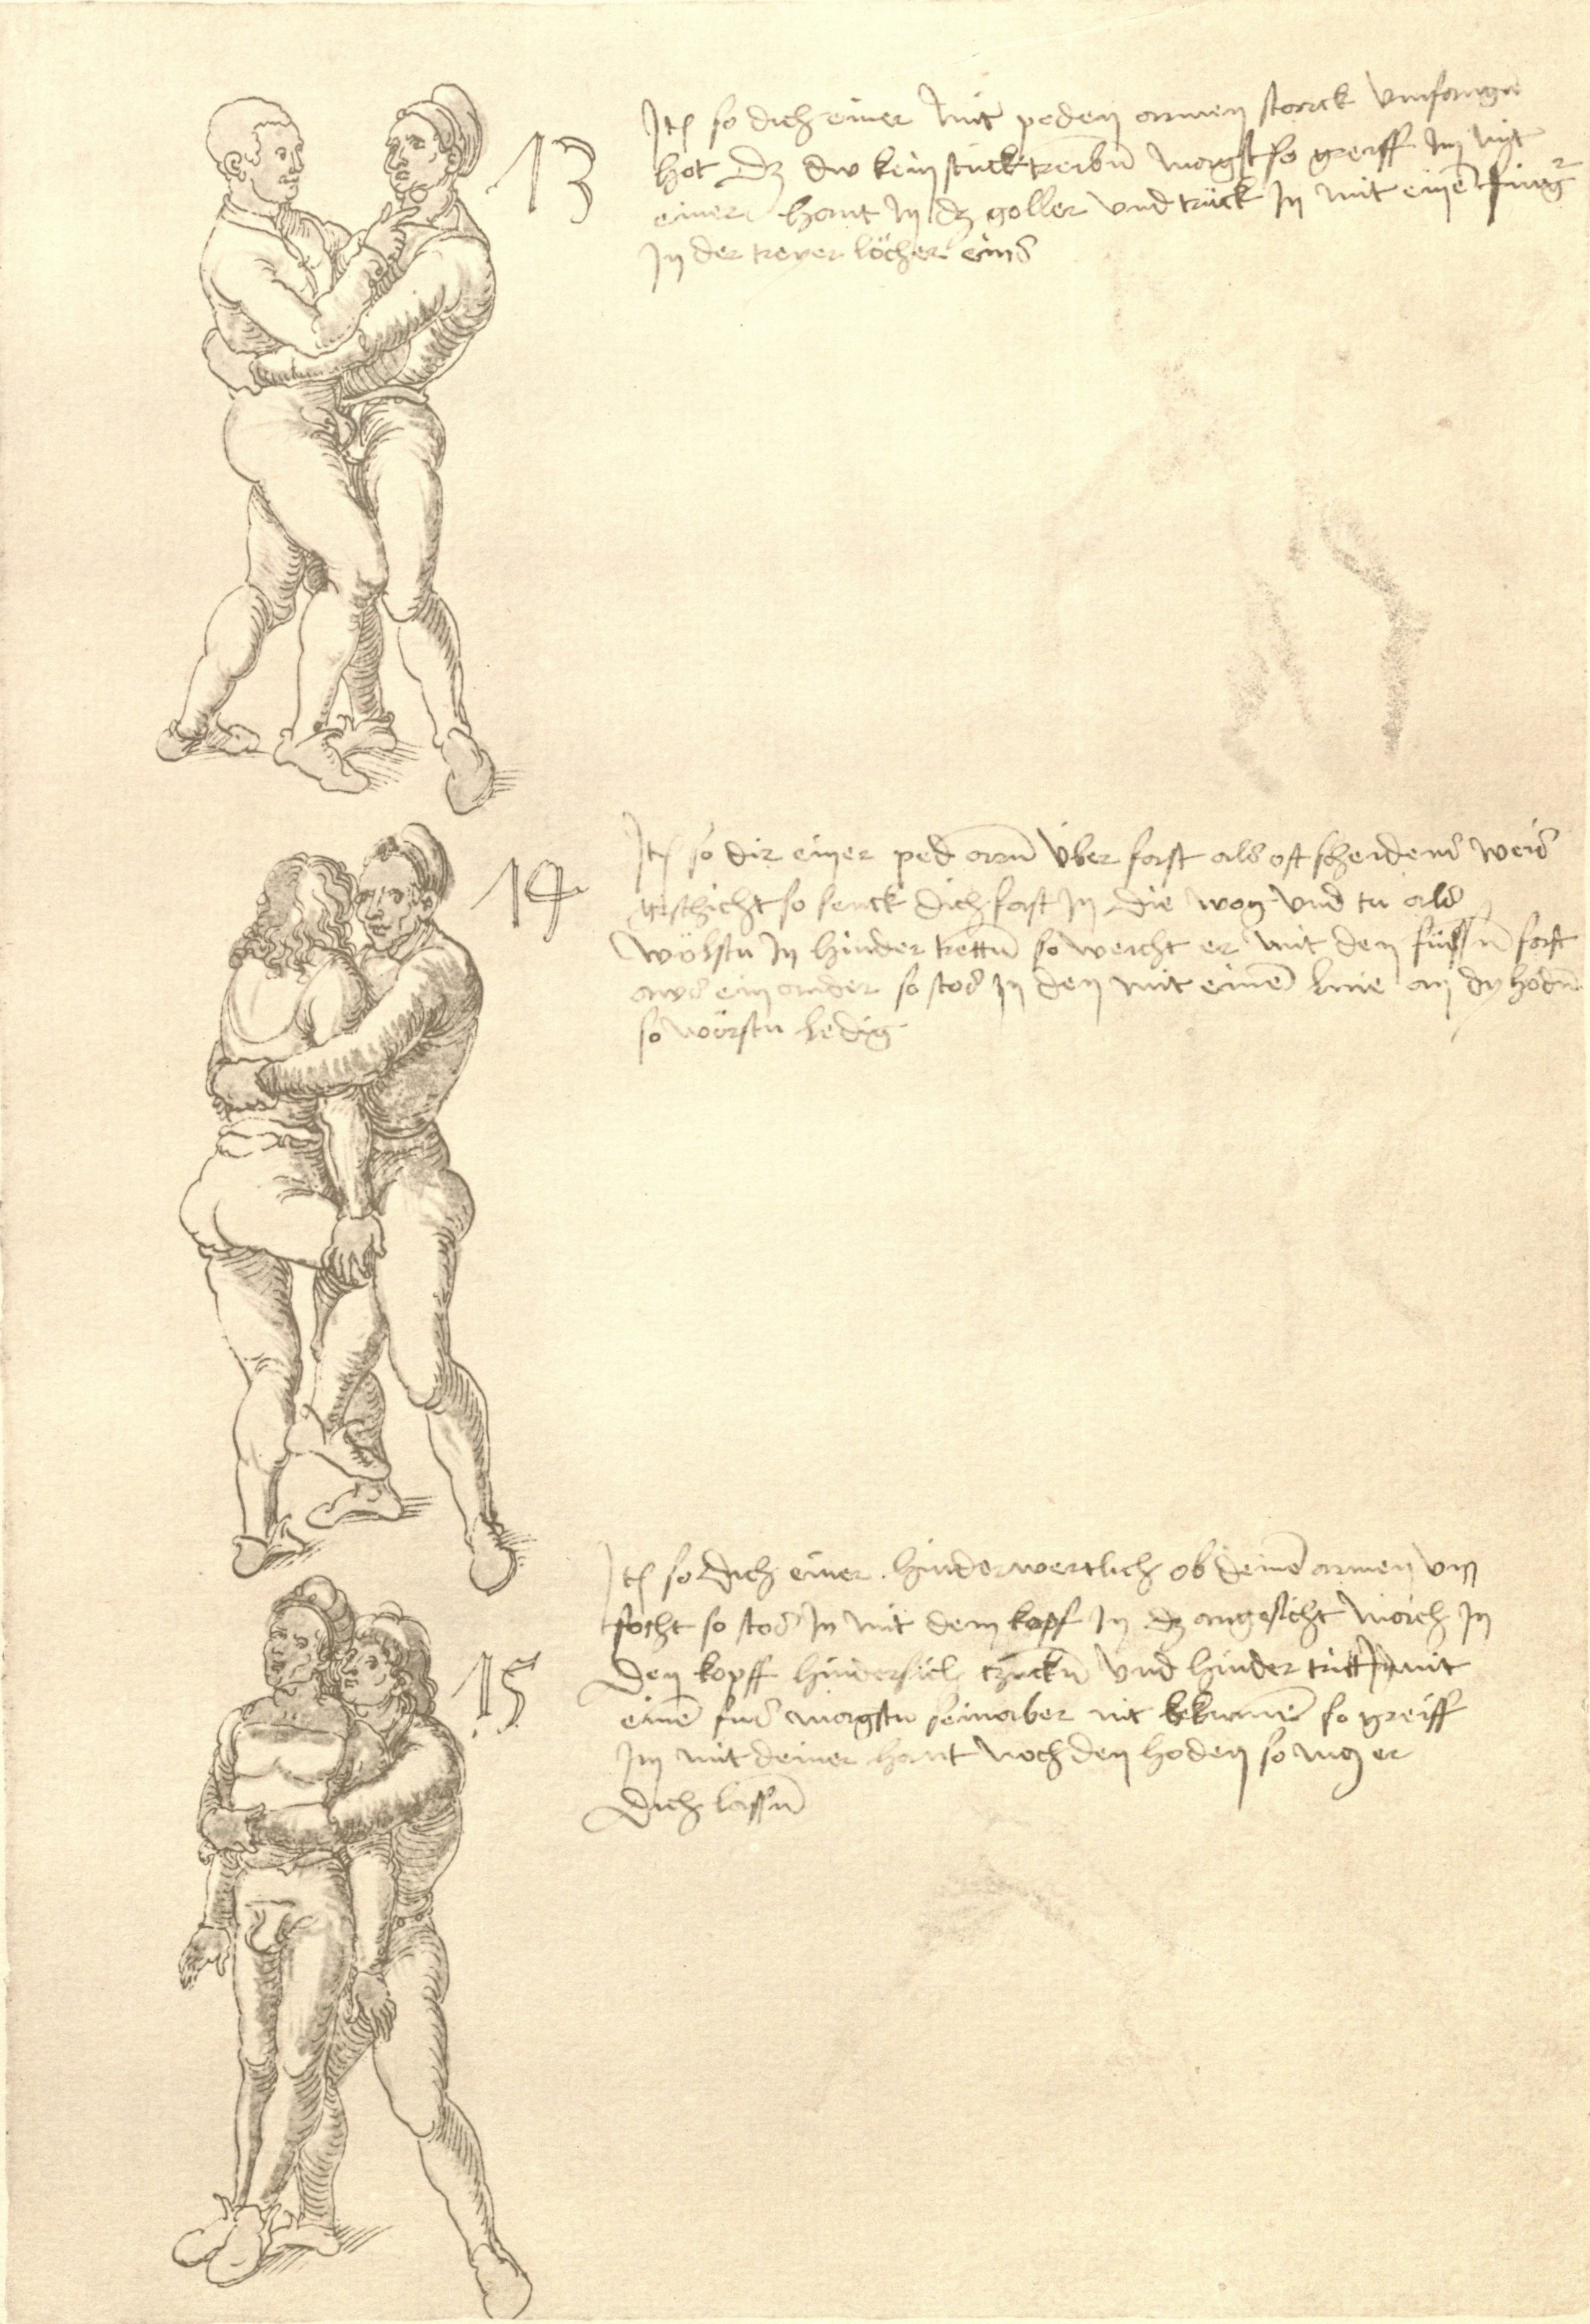 13
Itē so dich einer mit peden armen starck vmfangn̄
hot dz dw kein stuck treibn̄ magst so greiff im mit
einer hant in dz goller vnd trück in mit einē finger
in der treyer löcher eins
14
Itē so dir einer ped arm̄ vber fast als oft scheidens weis
geschicht so senck dich fast in die wog vnd tu als
wölstu in hinder trettn̄ so weicht er mit den füssn̄ fast
aws ein ander so stos in den mit einē knie an dy hodn̄
so würstu ledig
15
Itē so dich einer hinderwertlich ob deinē armen vm
focht so stos in mit dem kopf in dz angesicht
den kopff hindersich zuckn̄ vnd hinder tritt in mit
einē fus magstu sein aber nit bekumē so greiff
im mit deiner hant noch den hoden so mus er
dich lassn̄